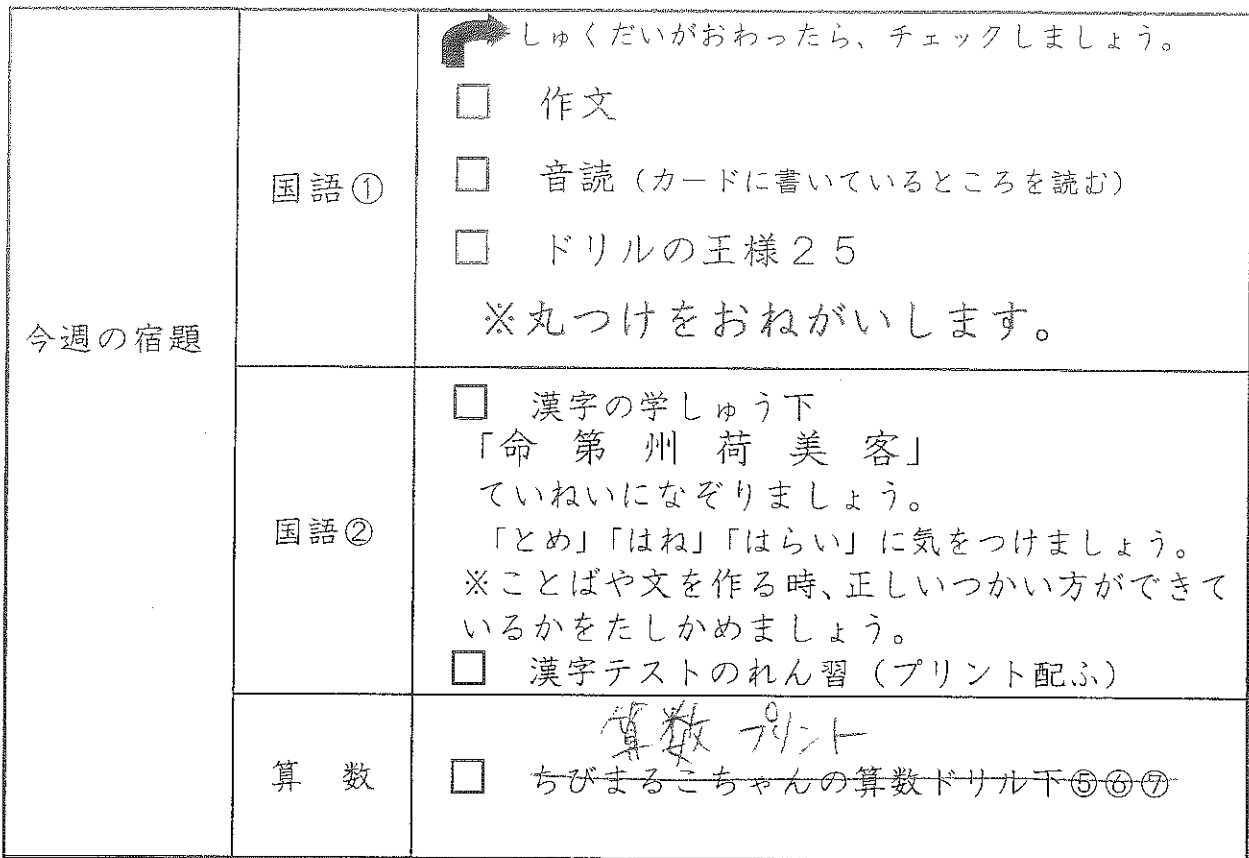 しゅくだいがおわったら、チェックしましょう。
今週の宿題
国語①
□ 作文
□ 音読（カードに書いているところを読む）
□ ドリルの王様２５
※丸つけをおねがいします。
国語②
□ 漢字の学しゅう下
「命 第 州 荷 美 客」
ていねいになぞりましょう。
「とめ」「はね」「はらい」に気をつけましょう。
※ことばや文を作る時、正しいつかい方ができて
いるかをたしかめましょう。
□ 漢字テストのれん習（プリント配ふ）
算 数
算数 プリント
□ ちびまるこちゃんの算数ドリル下⑤⑥⑦